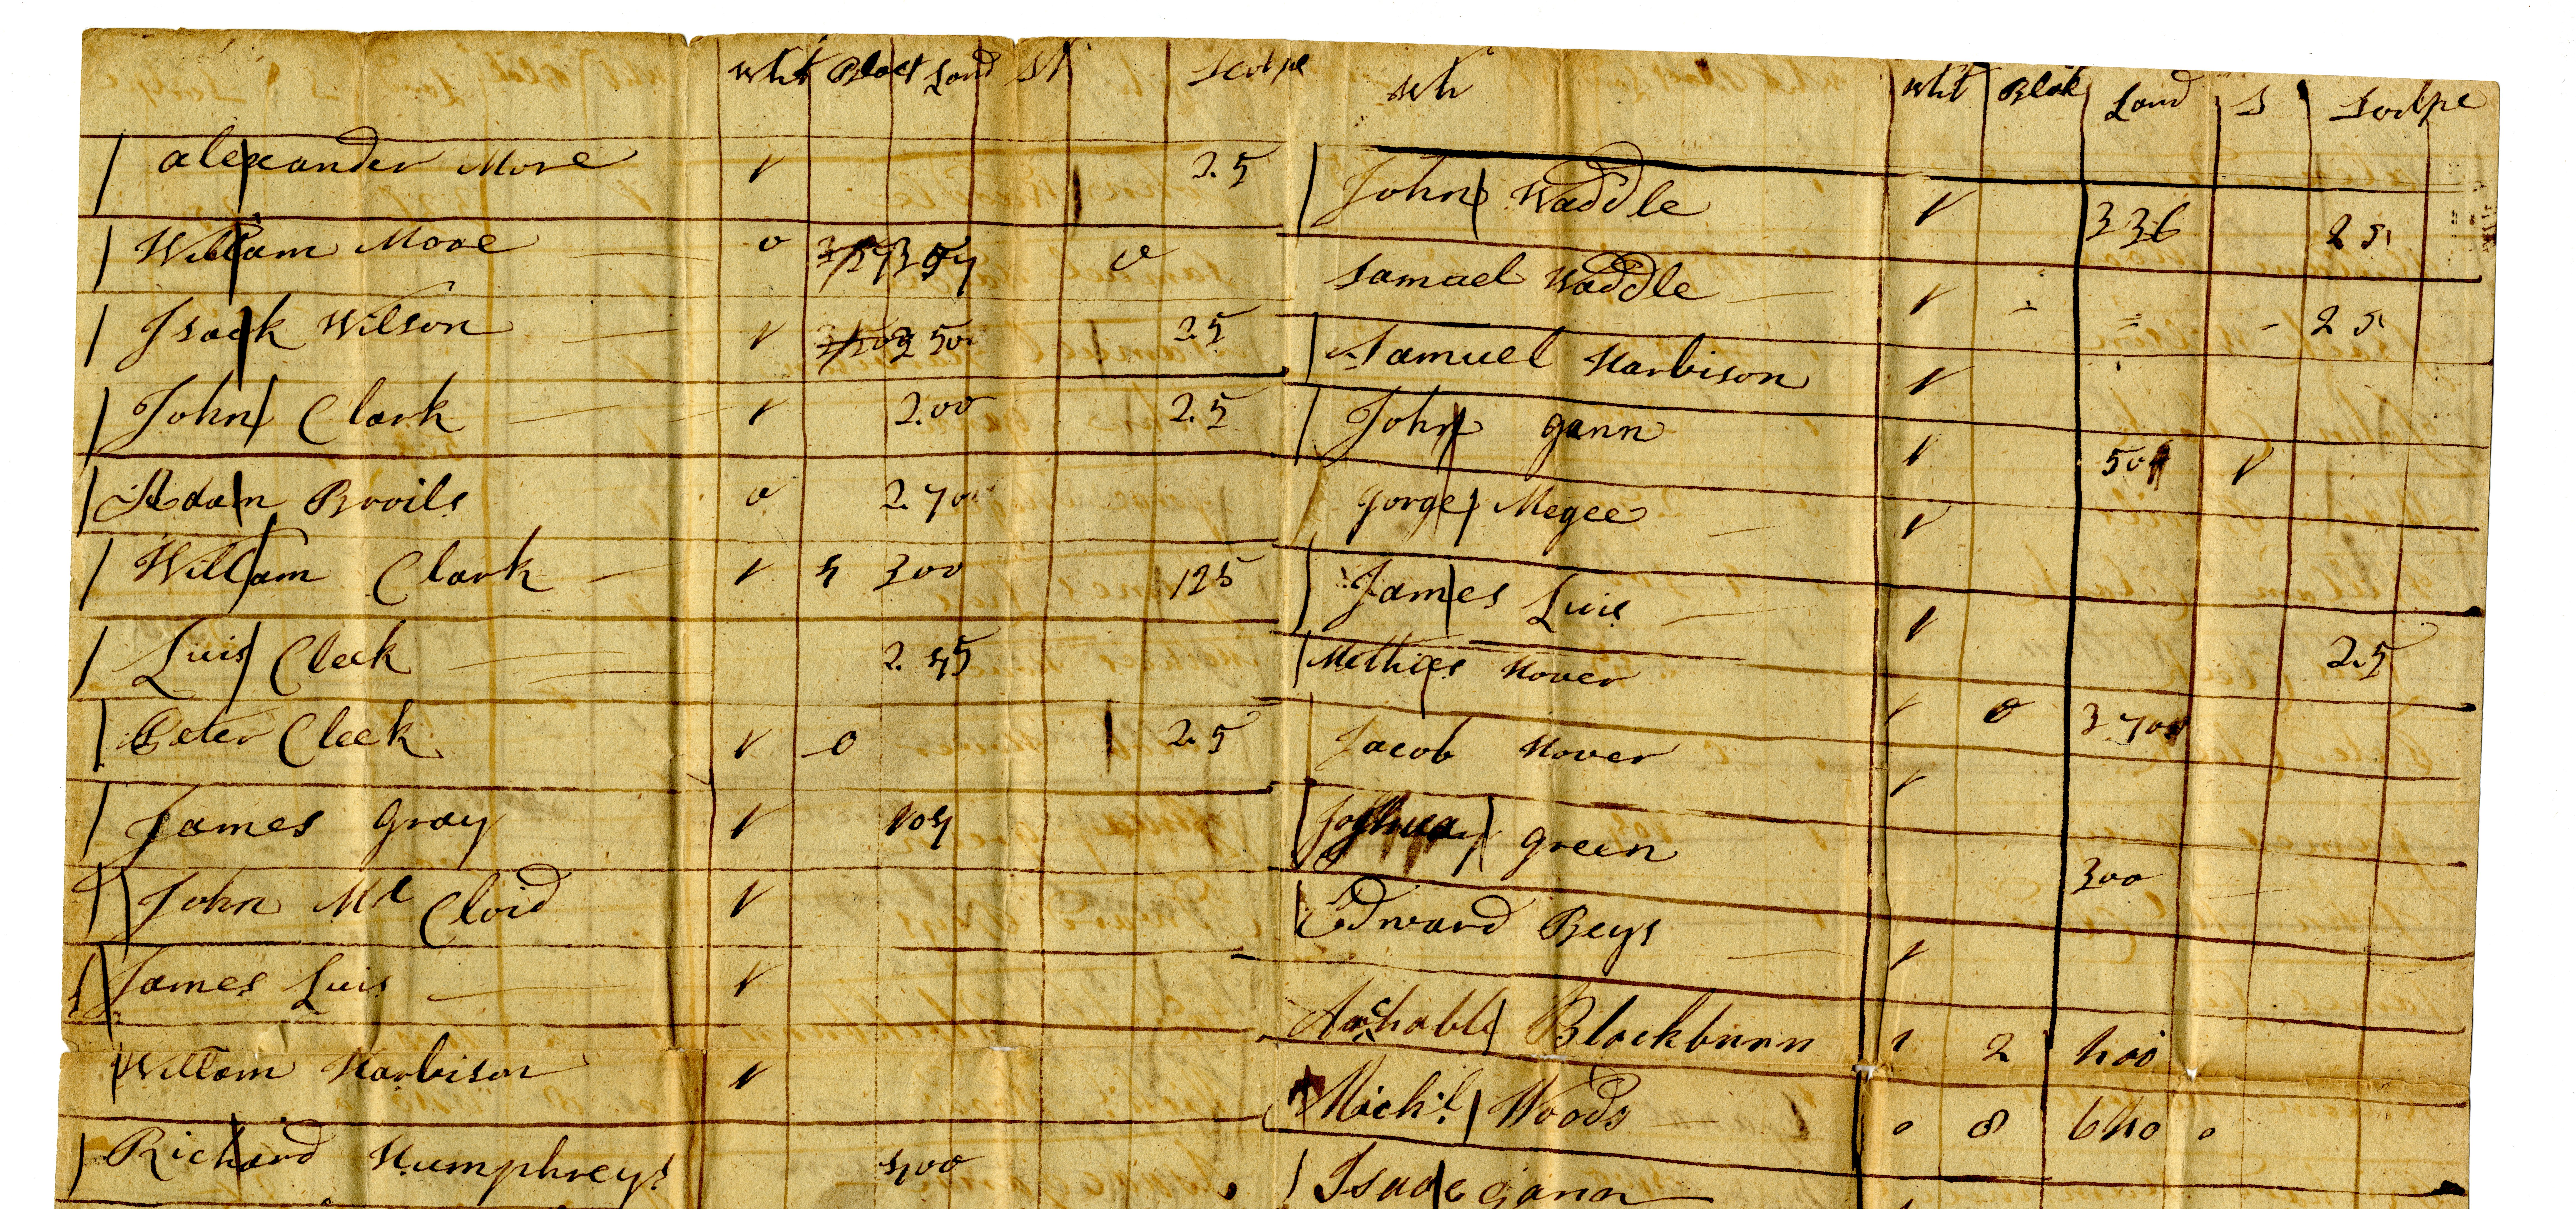 Whit Black Land St Scolpe
alexander More 1 2.5
William Moore 0 0
Isack Wilson 1 350 25
John Clark 1 200 2.5
Adam Broils 0 270
William Clark 1 5 300 125
Luis Cleek 2.45
Peter Cleek 1 0 2.5
James Gray 1 104
John Mc Cloid 1
James Luis 1
Willam Harbison 1
Richard Humphreys 400
Wh Whit Blak Land S Scolpe
John Waddle 1 336 25
Samuel Waddle 1 25
Samuel Harbison 1
John gann 1 50 1
Gorge Megee 1
James Luis 1 2.5
Methies Hover 1 0 370
Jacob Hover 1
Joshua green 300
Edward Beys 1
Archable Blackburn 1 2 400
Michl Woods 0 8 640 0
Isaac Gann